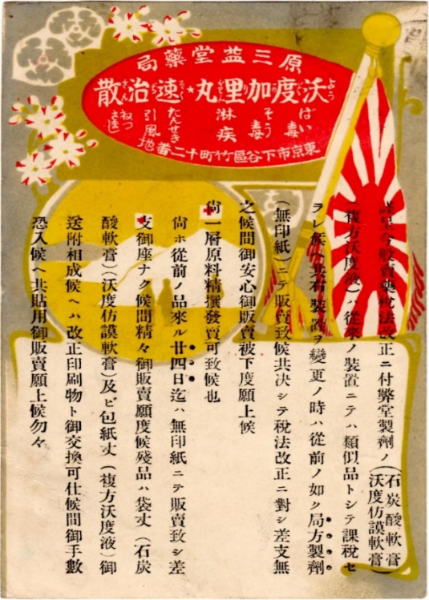 原三益堂藥局
沃度加里丸★速治散
ばい毒
そう毒
淋疾
たんせき
引風
ねつさまし
東京市下谷區竹町十二番地
今般賣藥税法改正ニ付弊堂製劑ノ(石炭酸軟膏)(沃度仿謨軟膏)
(複方沃度液)ハ從來ノ裝置ニテハ類似品トシテ課税セ
ラレ候 右裝置ヲ變更ノ時ハ從前ノ如ク局方製劑
(無印紙)ニテ販賣致候共決シテ税法改正ニ對シ差支無
之候間御安心御販賣被下度願上候
尚一層原料精撰發賣可致候也
尚ホ從前ノ品來ル廿四日迄ハ無印紙ニテ販賣致シ差
支御座ナク候間精々御販賣願度候殘品ハ袋丈(石炭
酸軟膏)(沃度仿謨軟膏)及ビ包紙丈(複方沃度液)御
送附相成候ヘハ改正印刷物ト御交換可仕候間御手數
恐入候ヘ共貼用御販賣願上候勿々